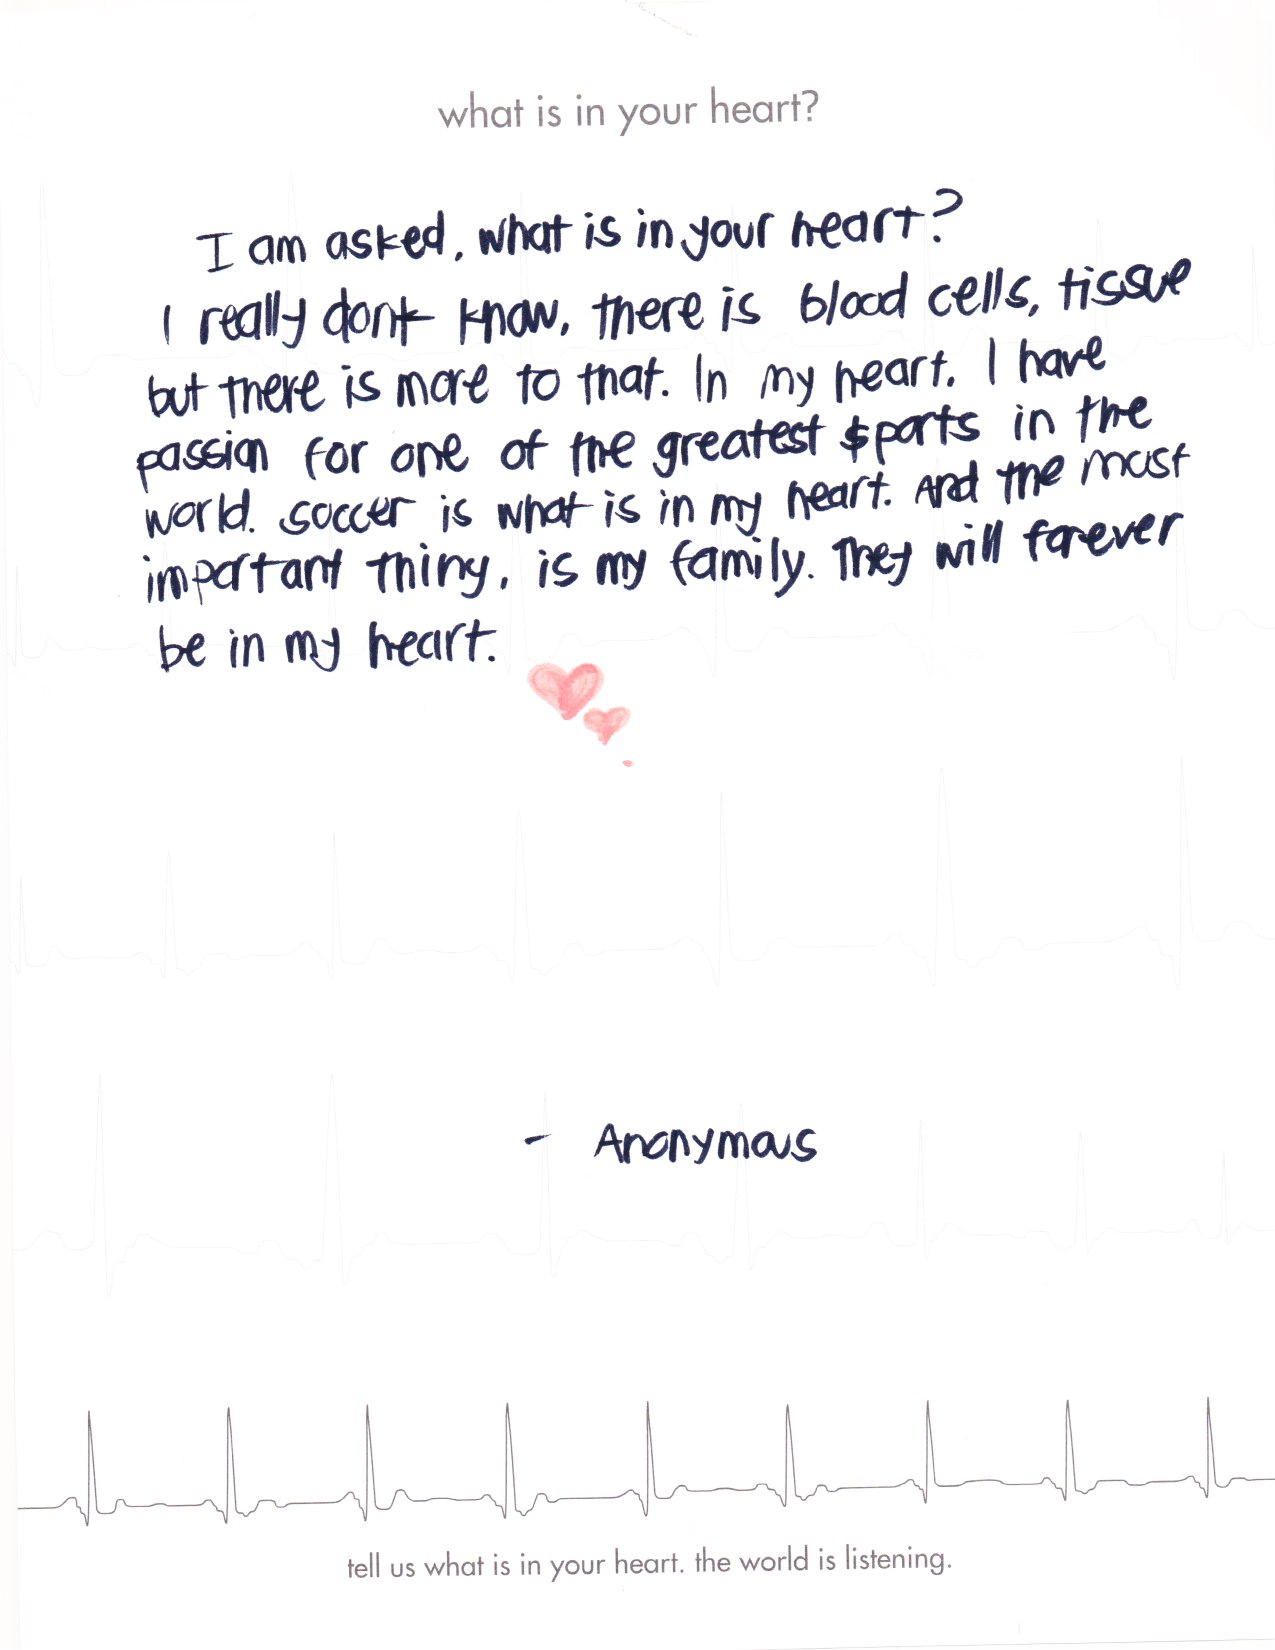 what is in your heart?
I am asked, what is in your heart?
I really dont know, there is blood cells, tissue
but there is more to that. In my heart, I have
passion for one of the greatest sports in the
world. soccer is what is in my heart. And the most
important thing, is my family. They will forever
be in my heart.
- Anonymous
tell us what is in your heart. the world is listening.